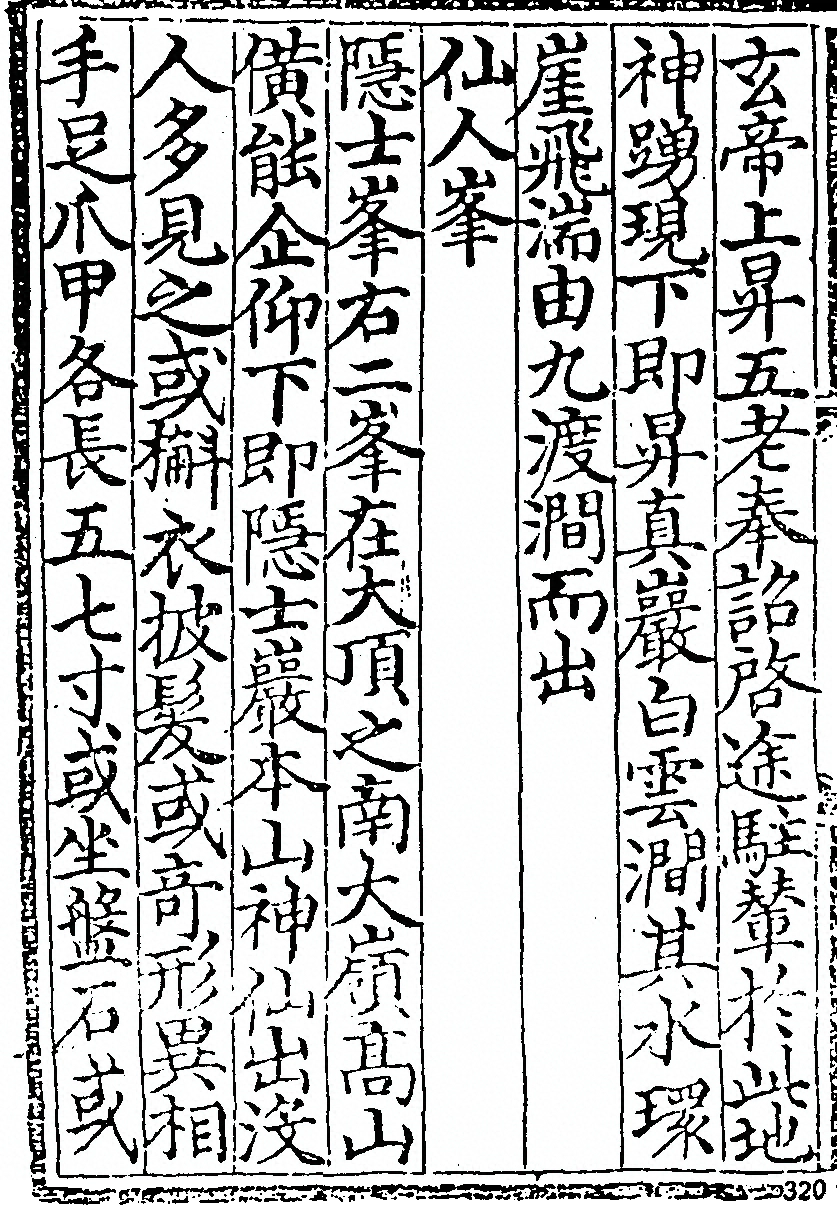 玄帝上昇五老奉詔啓途駐輦於此地
神踴現下即昇真巖白雲澗其水環
崖飛湍由九渡澗而出
仙人峯
隱士峯右二峯在大頂之南大嶺髙山
僙能企仰下即隱士巖本山神仙出没
人多見之或擀衣披髮或竒形異相
手足爪甲各長五七寸或坐盤石或
320